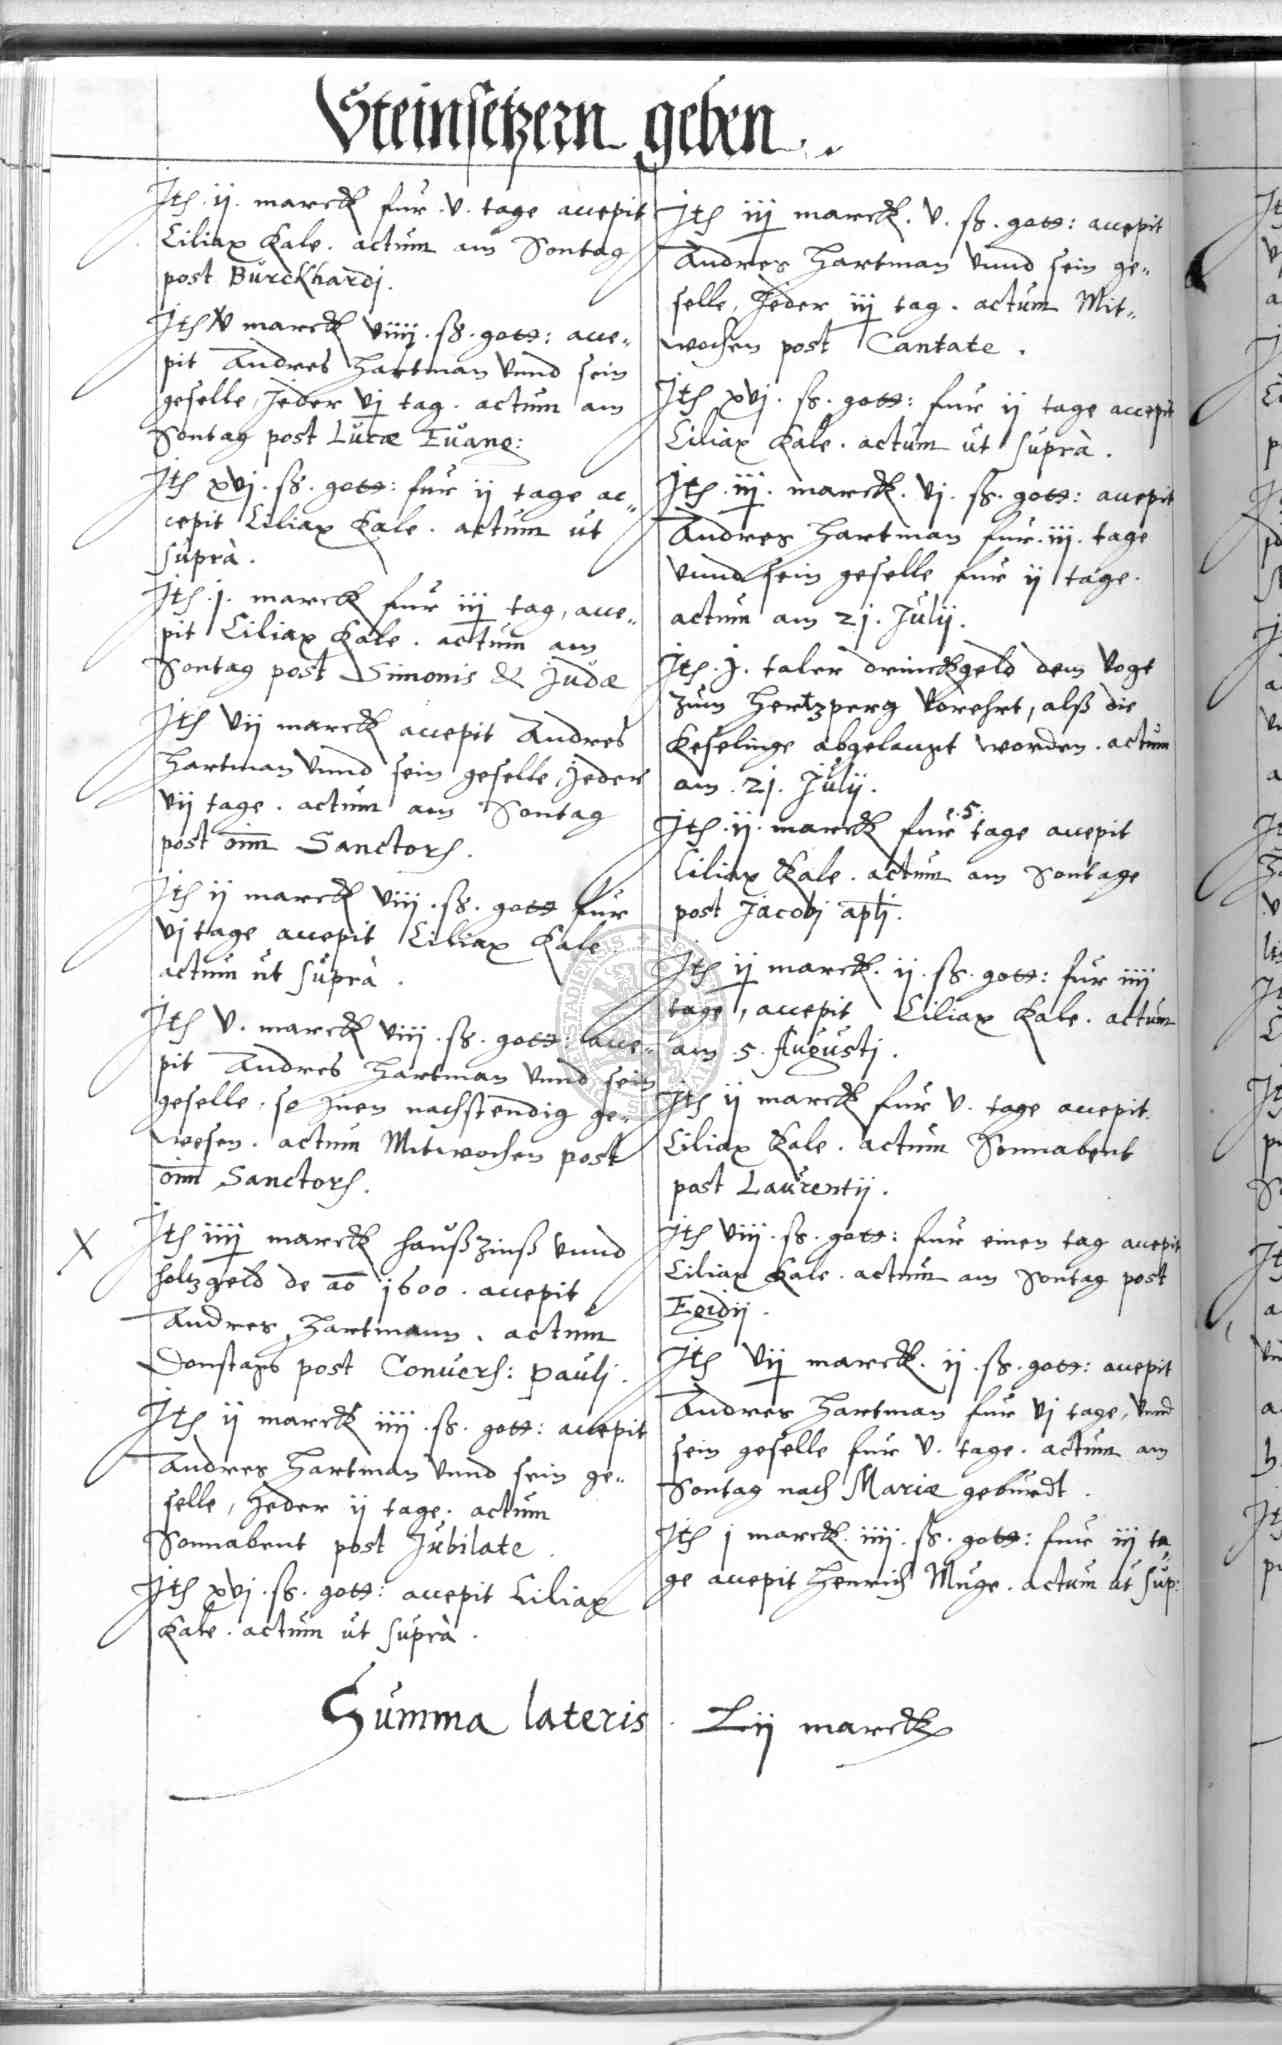 Steinsetzern geben.
Ith. ij. marck fur .v. tage accepit
Ciliax Kale. actum am Sontag
post Burckhardj.
Ith v marck viiij. sß. gott: acce„
pit Andres Hartman vnnd sein
geselle, Jeder vj tag. actum am
Sontag post Lucæ Euang:
Ith xvj. sß. gott: fur ij tage ac„
cepit Ciliax Kale. actum ut
suprà.
Ith. j. marck fur iij tag, acce„
pit Ciliax Kale. actum am
Sontag post Simonis & Judæ
Ith vij marck accepit Andres
Hartman vnnd sein geselle, Jeder
vij tage. actum am Sontag
post oīm Sanctorh.
Ith ij marck viij. sß. gott fur
vj tage accepit Ciliax Kale
actum ut suprà.
Ith v. marck viij. sß. gott: acce„
pit Andres Hartman vnnd sein
geselle, so Jnen nachstendig ge„
wesen. actum Mitwochen post
oīm Sanctorh.
X Ith iiij marck haußzinß vnnd
holtzgeld de ao 1600. accepit
Andres Hartmann. actum
Donstags post Conuers: Paulj.
Ith ij marck iiij. sß. gott: accepit
Andres Hartman vnnd sein ge„
selle, Jeder ij tage. actum
Sonnabent post Jubilate.
Ith xvj. sß. gott: accepit Ciliax
Kale. actum ut suprà.
Ith iij marck. v. sß. gott: accepit
Andres Hartman vnnd sein ge„
selle, Jeder iij tag. actum Mit„
wochen post Cantate.
Ith xvj. sß. gott: fur ij tage accepit
Ciliax Kale. actum ut suprà.
Ith. iij. marck. vj. sß. gott: accepit
Andres Hartman fur. iij. tage
vnnd sein geselle fur ij tage.
actum am 21. Julij.
Ith. j. taler drinckgeld dem Vogt
zum Hertzperg vorehrt, alß die
Keselinge abgelanzt worden. actum
am. 21. Julij.
Ith. ij. marck fur .5. tage accepit
Ciliax Kale. actum am Sontage
post Jacobj aplj.
Ith ij marck. ij. sß. gott: fur iiij
tage, accepit Ciliax Kale. actum
am .5. Augustj.
Ith ij marck fur v. tage accepit
Ciliax Kale. actum Sonnabent
post Laurentij.
Ith viij. sß. gott: fur einen tag accepit
Ciliax Kale. actum am Sontag post
Egidij.
Ith vij marck. ij. sß. gott: accepit
Andres Hartman fur vj tage, vnnd
sein geselle fur v. tage. actum am
Sontag nach Mariæ geburdt.
Ith j marck. iiij. sß. gott: fur iij ta„
ge accepit Henrich Muge. actum ut sup:
Summa lateris. Lij marck